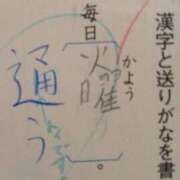 漢字と送りがなを書
かよう
毎日〔火曜〕。
通う